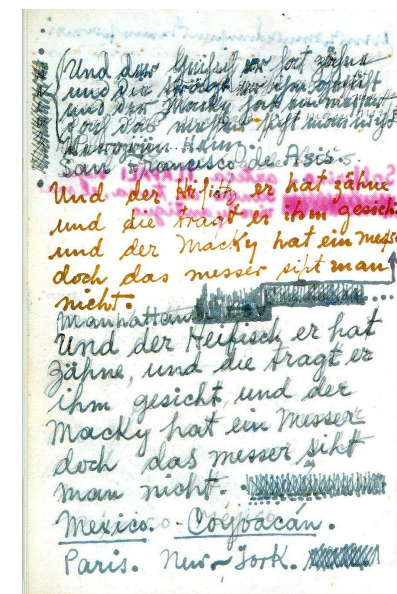 Und der Heifisch er hat zähne
und die trägt er ihm gesicht
und der Macky hat ein messer
doch das messer siht man nicht
San Francisco de Asis.
Und der Heifish, er hat zähne
und die tragt er ihm gesicht
und der Macky hat ein messer
doch das messer siht man
nicht.
Manhattan
Und der Heifisch er hat
zähne, und die tragt er
ihm gesicht, und der
Macky hat ein Messer
doch das messer siht
man nicht.
Mexico. Coyoacán.
Paris. New-York.